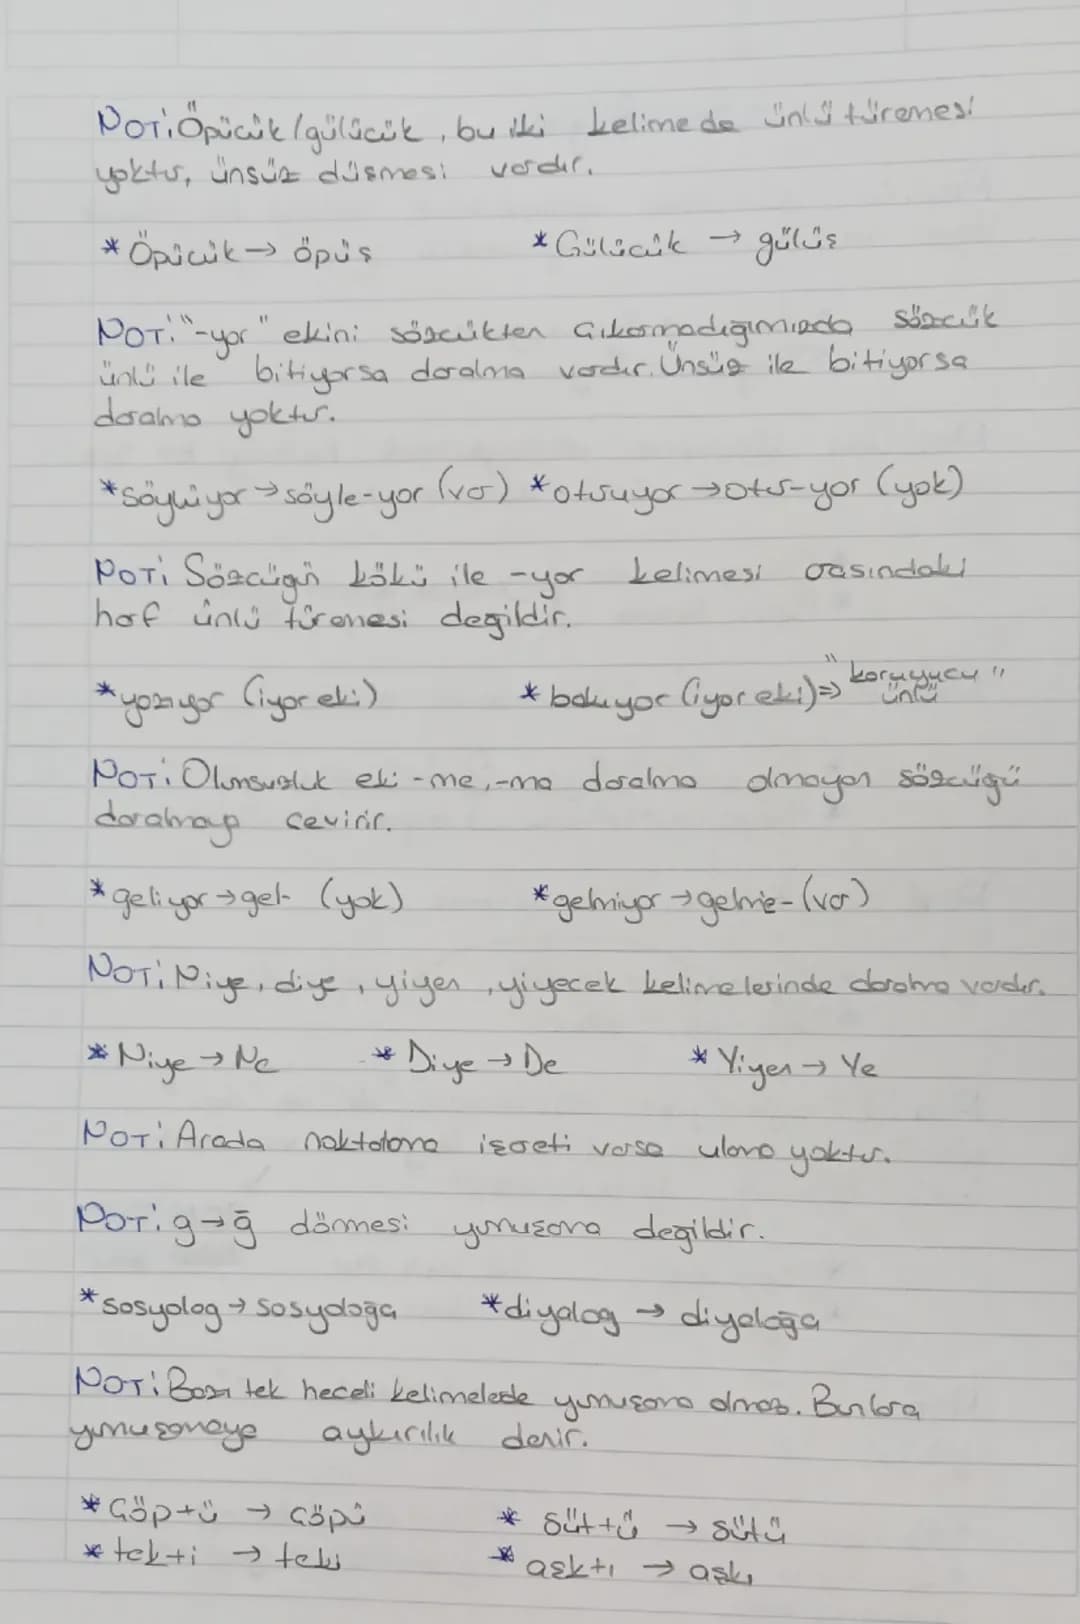 NOT: Öpücük / gülücük, bu iki kelimede ünlü türemesi
yoktur, ünsüz düşmesi vardır.
* Öpücük → öpüş * Gülücük → gülüş
NOT: "-yor" ekini sözcükten çıkarmadığımızda sözcük
ünlü ile bitiyorsa daralma vardır. Ünsüz ile bitiyorsa
daralma yoktur.
* söylüyor → söyle-yor (var) * oturuyor → otur-yor (yok)
NOT: Sözcüğün kökü ile -yor kelimesi arasındaki
harf ünlü türemesi değildir.
* yazıyor (iyor eki) * bakıyor (iyor eki) => "koruyucu ünlü"
NOT: Olumsuzluk eki -me, -ma daralma olmayan sözcüğü
daralmaya çevirir.
* geliyor → gel- (yok) * gelmiyor → gelme- (var)
NOT: Niye, diye, yiyen, yiyecek kelimelerinde daralma vardır.
* Niye → Ne * Diye → De * Yiyen → Ye
NOT: Arada noktalama işareti varsa ulama yoktur.
NOT: g → ğ dönmesi yumuşama değildir.
* sosyolog → sosyoloğa * diyalog → diyaloğa
NOT: Bazı tek heceli kelimelerde yumuşama olmaz. Bunlara
yumuşamaya aykırılık denir.
* Çöp+ü → çöpü * süt+ü → sütü
* tek+i → teki * aşk+ı → aşkı